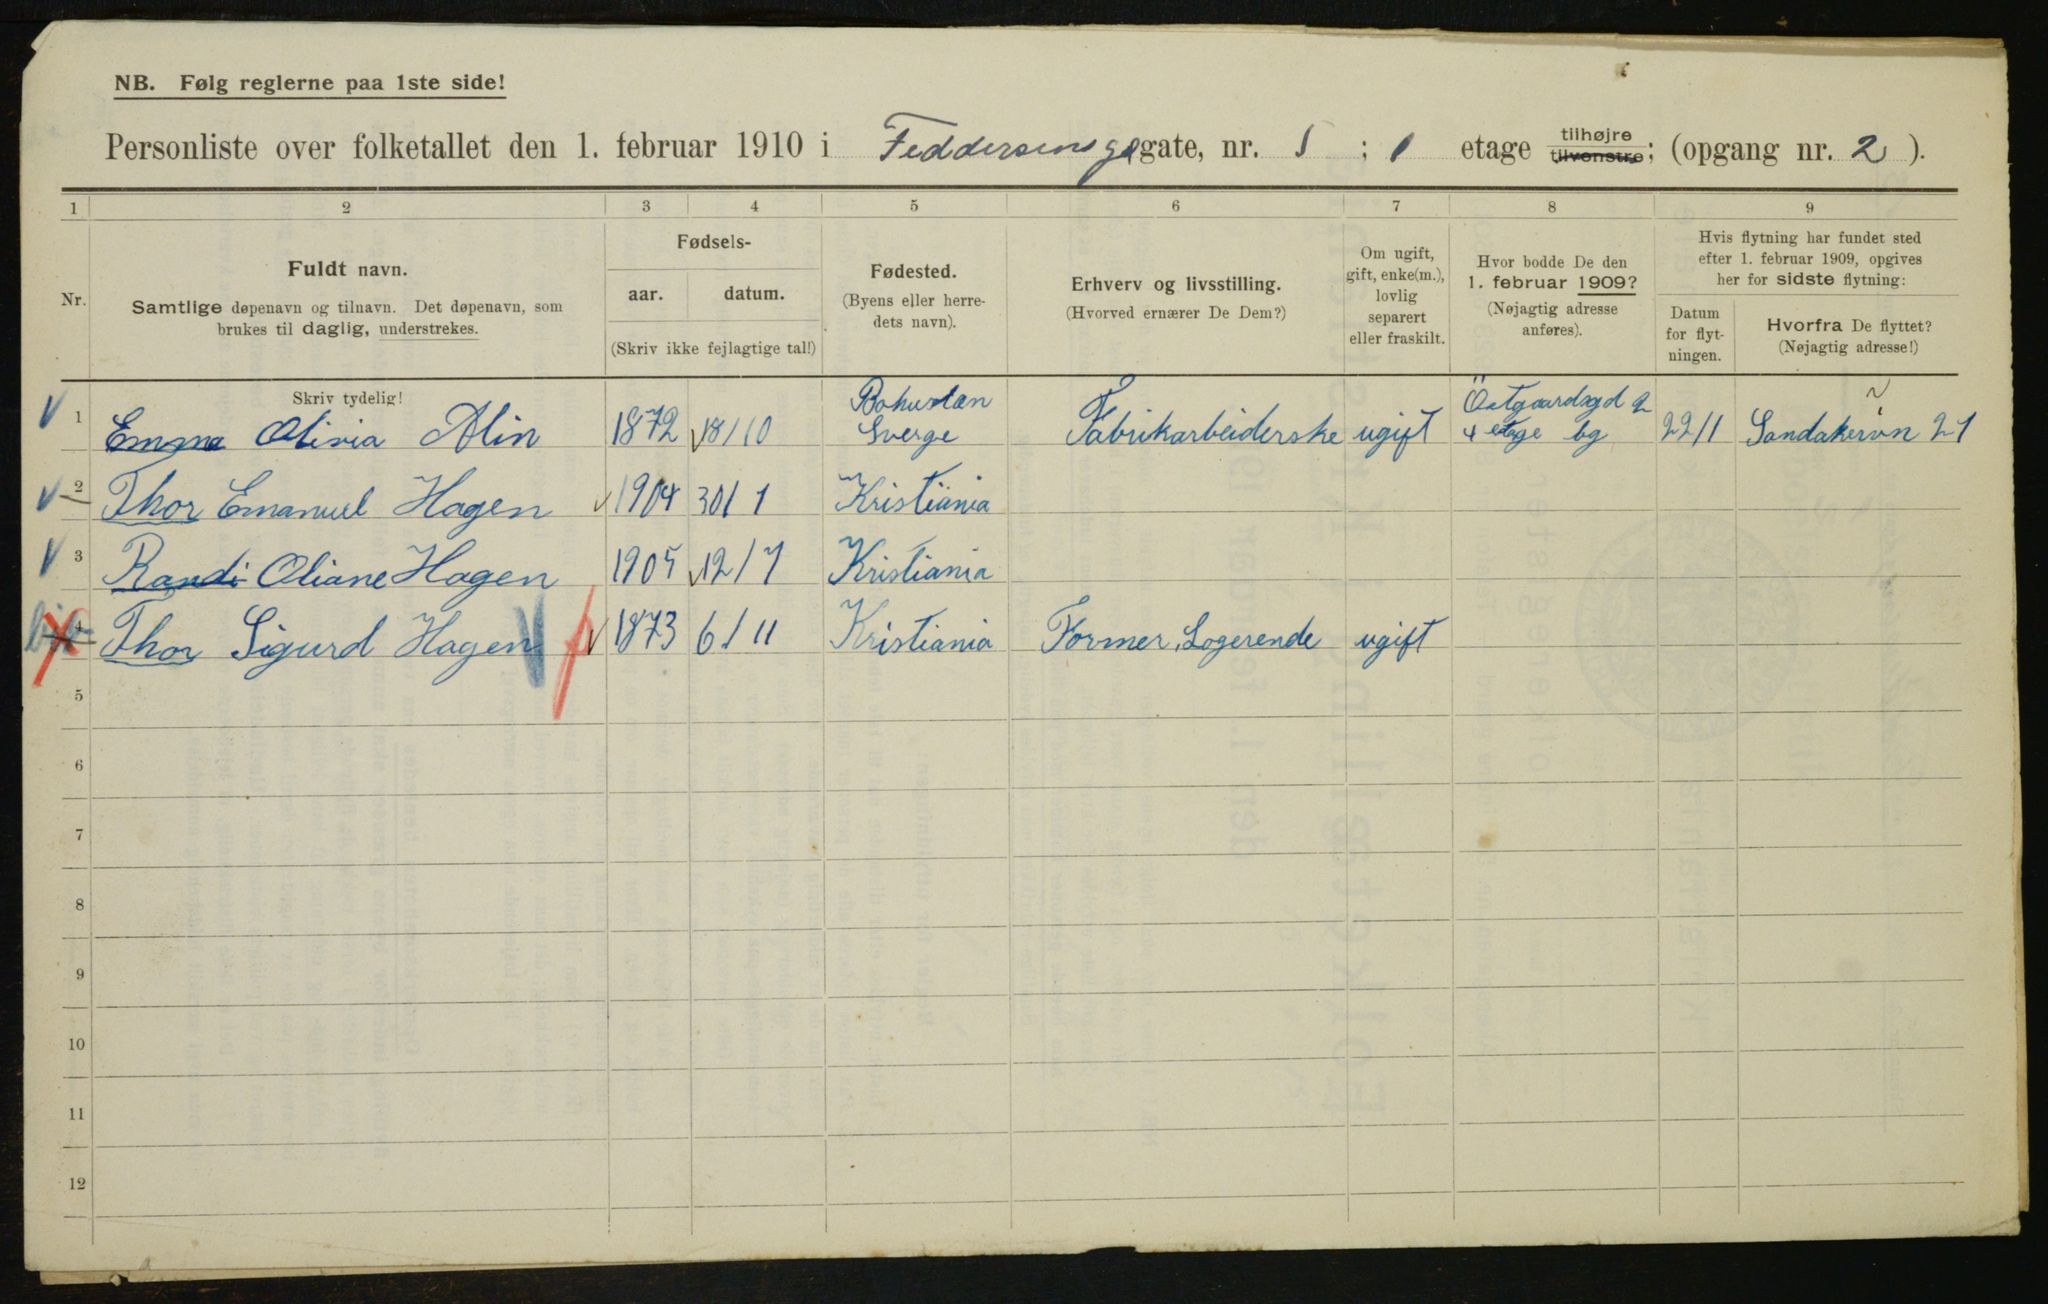 NB. Følg reglerne paa 1ste side!
Personliste over folketallet den 1. februar 1910 i Feddersens gate, nr. 1 ; 1 etage tilhøjre tilvenstre; (opgang nr. 2 ).
1 2 3 4 5 6 7 8 9
Nr.
Fuldt navn.
Samtlige døpenavn og tilnavn. Det døpenavn, som
brukes til daglig, understrekes.
Fødsels-
aar. datum.
(Skriv ikke fejlagtige tal!)
Fødested.
(Byens eller herre-
dets navn).
Erhverv og livsstilling.
(Hvorved ernærer De Dem?)
Om ugift,
gift, enke(m.),
lovlig
separert
eller fraskilt.
Hvor bodde De den
1. februar 1909?
(Nøjagtig adresse
anføres).
Hvis flytning har fundet sted
efter 1. februar 1909, opgives
her for sidste flytning:
Datum
for flyt-
ningen.
Hvorfra De flyttet?
(Nøjagtig adresse!)
Skriv tydelig!
1 Emma Olivia Alin 1872 18/10 Bohuslæn Sverge Fabrikarbeiderske ugift Östgaardsgd 2 4 etage bg 22/1 Sandakervn 21
2 Thor Emanuel Hagen 1904 30/1 Kristiania
3 Randi Oliane Hagen 1905 12/7 Kristiania
4 Thor Sigurd Hagen 1873 6/11 Kristiania Former, Logerende ugift
5
6
7
8
9
10
11
12